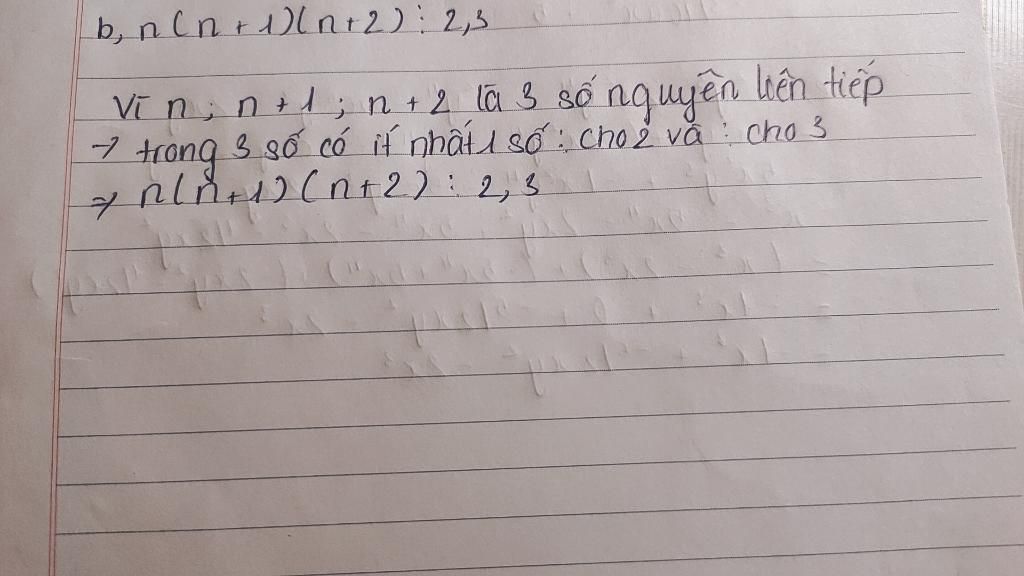 b, n(n+1)(n+2) ⋮ 2,3
Vì n; n+1; n+2 là 3 số nguyên liên tiếp
→ trong 3 số có ít nhất 1 số ⋮ cho 2 và ⋮ cho 3
⇒ n(n+1)(n+2) ⋮ 2,3